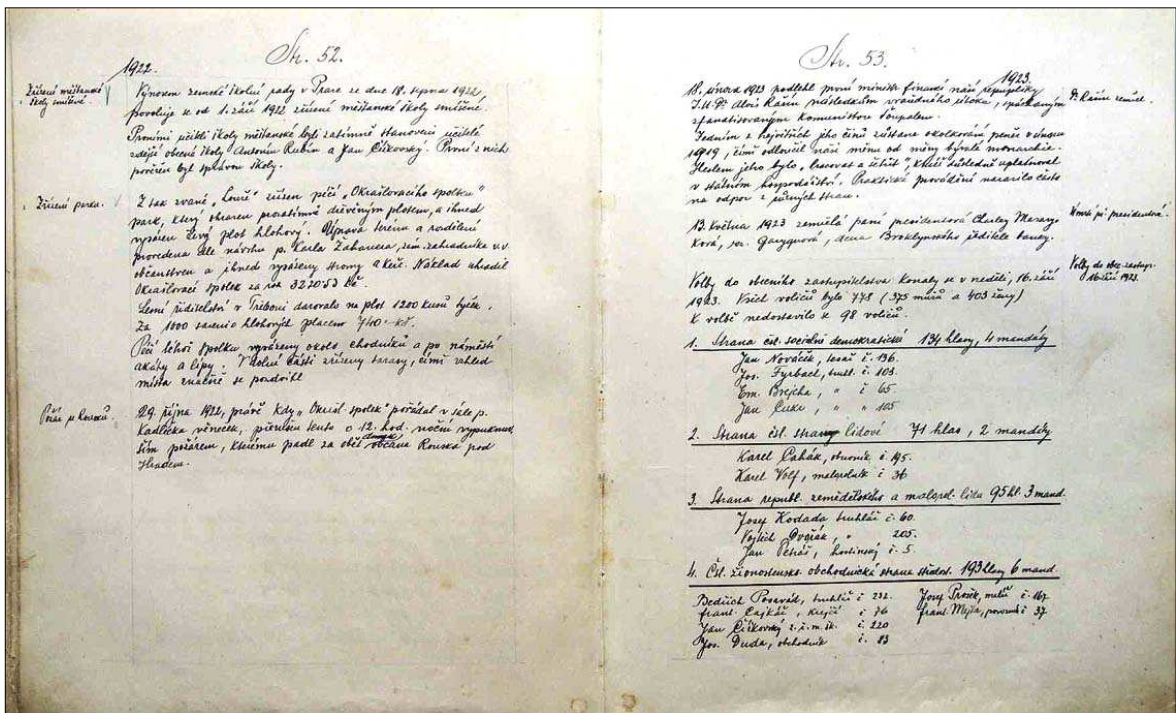 Str. 52.
1922.
Zřízení měšťanské
školy smíšené.
Výnosem zemské školní rady v Praze ze dne 18. srpna 1922,
povoluje se od 1. září 1922 zřízení měšťanské školy smíšené.
Prvními učiteli školy měšťanské byli zatímně stanoveni učitelé
zdejší obecné školy Antonín Rubín a Jan Čížkovský. První z nich
pověřen byl správou školy.
Zřízení parku.
Z tak zvané „Louže" zřízen péčí „Okrašlovacího spolku"
park, který ohrazen prozatimně dřevěným plotem, a ihned
vysazen živý plot hlohový. Úprava terénu a rozdělení
provedena dle návrhu p. Karla Zahauera, zahradníka v.v.
občanstvem a ihned vysázeny stromy a keře. Náklad uhradil
Okrašlovací spolek za rok 3270·53 Kč.
Lesní ředitelství v Třeboni darovalo na plot 1200 kusů tyček.
Za 1000 sazenic hlohových placeno 740·- Kč.
Péčí téhož spolku vysázeny okolo chodníků a po náměstí
akáty a lípy. V dolní části zřízeny tarasy, čímž vzhled
místa značně se pozdvihl
Požár u Rousků.
29. října 1922, právě když „Okrašl. spolek" pořádal v sále p.
Kadlička věneček, přerušen tento o 12. hod. noční vypuknuv-
ším požárem, kterému padl za oběť domek občana Rouska pod
Hradem.
Str. 53.
1923.
18. února 1923 podlehl první ministr financí naší republiky
J.U.Dr. Alois Rašín následkům vražedného útoku, spáchaným
zfanatisovaným komunistou Šoupalem.
Dr. Rašín zemřel.
Jedním z největších jeho činů zůstane okolkování peněz v únoru
1919, čímž odloučil naši měnu od měny bývalé monarchie.
Heslem jeho bylo „pracovat a šetřit", kteréž důsledně uplatňoval
v státním hospodářství. Praktické provádění naráželo často
na odpor z různých stran.
13. května 1923 zemřela paní presidentová Charley Masary-
ková, roz. Garyguová, dcera Broklynského ředitele banky.
Úmrtí pí presidentové.
Volby do obecního zastupitelstva konaly se v neděli, 16. září
1923. Všech voličů bylo 778 (375 mužů a 403 ženy)
K volbě nedostavilo se 98 voličů.
Volby do obec. zastup.
16. září 1923.
1. Strana čsl. sociálně demokratická 134 hlasy, 4 mandáty
Jan Nováček, č. 136.
Jos. Fyrbach, truhl. č. 103.
Em. Brejcha, " č 65
Jan Cuke, " " 105
2. Strana čsl. strany lidové 71 hlas, 2 mandáty
Karel Cahák, obuvník č. 195.
Karel Volf, malorolník č 36
3. Strana republ. zemědělského a malorol. lidu 95 hl. 3 mand.
Josef Kodada truhlář č. 60.
Vojtěch Dvořák, " 205.
Jan Petráš, hostinský č. 5.
4. Čsl. živnostensko obchodnická strana středos. 193 hlasy 6 mand.
Bedřich Posavád, truhlář č 232.
Josef Prošek, č. 167
frant. Cajkář, krejčí č 76
frant. Mejta, č 37
Jan Čížkovský č. 220
Jos. Duda, obchodník č. 83